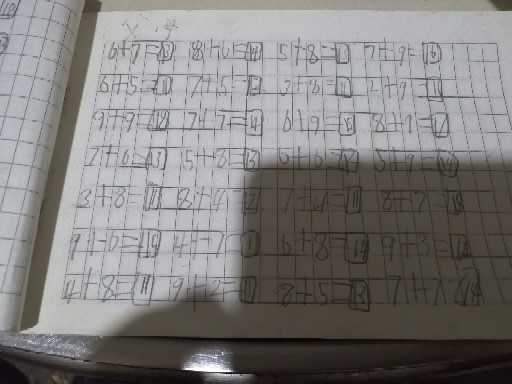 6+7=13 8+6=14 5+8=13 7+9=16
6+5=11 7+5=12 3+8=11 2+9=11
9+9=18 7+7=14 6+9=15 8+9=17
7+6=13 5+8=13 6+6=12 5+9=14
3+8=11 8+4=12 7+4=11 8+7=
9+6= 4+7=11 6+8= 9+3=12
4+8=11 9+2=11 8+5=13 7+7=14